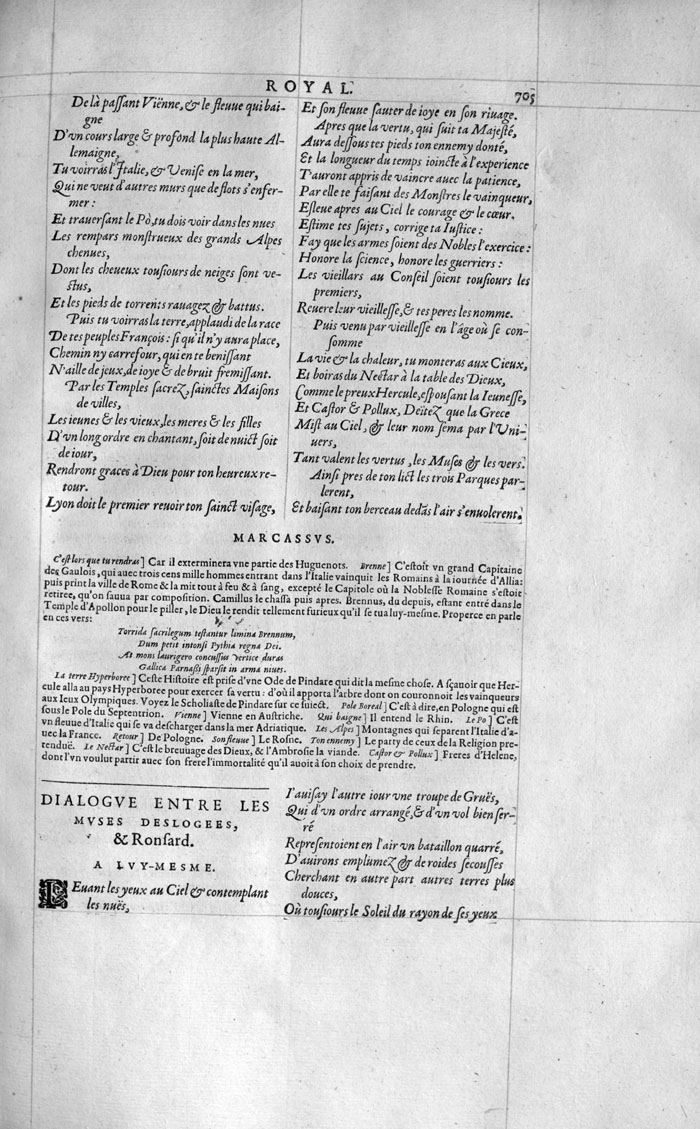 ROYAL.
705
De là passant Viënne, & le fleuue qui bai-
gne
D'vn cours large & profond la plus haute Al-
lemaigne,
Tu voirras l'Italie, & Venise en la mer,
Qui ne veut d'autres murs que de flots s'enfer-
mer:
Et trauersant le Pò, tu dois voir dans les nues
Les rempars monstrueux des grands Alpes
chenues,
Dont les cheueux tousiours de neiges sont ve-
stus,
Et les pieds de torrents rauagez & battus.
Puis tu voirras la terre, applaudi de la race
De tes peuples François: si qu'il n'y aura place,
Chemin ny carrefour, qui en te benissant
N'aille de jeux, de ioye & de bruit fremissant.
Par les Temples sacrez, sainctes Maisons
de villes,
Les ieunes & les vieux, les meres & les filles
D'vn long ordre en chantant, soit de nuict soit
de iour,
Rendront graces à Dieu pour ton heureux re-
tour.
Lyon doit le premier reuoir ton sainct visage,
Et son fleuue sauter de ioye en son riuage.
Apres que la vertu, qui suit ta Majesté,
Aura dessous tes pieds ton ennemy donté,
Et la longueur du temps ioincte à l'experience
T'auront appris de vaincre auec la patience,
Par elle te faisant des Monstres le vainqueur,
Esleue apres au Ciel le courage & le cœur.
Estime tes sujets, corrige ta Iustice:
Fay que les armes soient des Nobles l'exercice:
Honore la science, honore les guerriers:
Les vieillars au Conseil soient tousiours les
premiers,
Reuere leur vieillesse, & tes peres les nomme.
Puis venu par vieillesse en l'âge où se con-
somme
La vie & la chaleur, tu monteras aux Cieux,
Et boiras du Nectar à la table des Dieux,
Comme le preux Hercule, espousant la Ieunesse,
Et Castor & Pollux, Deïtez que la Grece
Mist au Ciel, & leur nom sema par l'Vni-
uers,
Tant valent les vertus, les Muses & les vers.
Ainsi pres de ton lict les trois Parques par-
lerent,
Et baisant ton berceau dedãs l'air s'enuolerent.
MARCASSVS.
C'est lors que tu rendras] Car il exterminera vne partie des Huguenots. Brenne] C'estoit vn grand Capitaine
des Gaulois, qui auec trois cens mille hommes entrant dans l'Italie vainquit les Romains à la iournée d'Allia:
puis print la ville de Rome & la mit tout à feu & à sang, excepté le Capitole où la Noblesse Romaine s'estoit
retiree, qu'on sauua par composition. Camillus le chassa puis apres. Brennus, du depuis, estant entré dans le
Temple d'Apollon pour le piller, le Dieu le rendit tellement furieux qu'il se tua luy-mesme. Properce en parle
en ces vers:
Torrida sacrilegum testantur limina Brennum,
Dum petit intonsi Pythia regna Dei.
At mons laurigero concussus vertice duras
Gallica Parnassi sparsit in arma niues.
La terre Hyperboree] Ceste Histoire est prise d'vne Ode de Pindare qui dit la mesme chose. A sçauoir que Her-
cule alla au pays Hyperboree pour exercer sa vertu: d'où il apporta l'arbre dont on couronnoit les vainqueurs
aux Ieux Olympiques. Voyez le Scholiaste de Pindare sur ce suiect. Pole Boreal] C'est à dire, en Pologne qui est
sous le Pole du Septentrion. Vienne] Vienne en Austriche. Qui baigne] Il entend le Rhin. Le Po] C'est
vn fleuue d'Italie qui se va descharger dans la mer Adriatique. Les Alpes] Montagnes qui separent l'Italie d'a-
uec la France. Retour] De Pologne. Son fleuue] Le Rosne. Ton ennemy] Le party de ceux de la Religion pre-
tenduë. Le Nectar] C'est le breuuage des Dieux, & l'Ambrosie la viande. Castor & Pollux] Freres d'Helene,
dont l'vn voulut partir auec son frere l'immortalité qu'il auoit à son choix de prendre.
DIALOGVE ENTRE LES
MVSES DESLOGEES,
& Ronsard.
A LVY-MESME.
LEuant les yeux au Ciel & contemplant
les nuës,
I'auisay l'autre iour vne troupe de Gruës,
Qui d'vn ordre arrangé, & d'vn vol bien ser-
ré
Representoient en l'air vn bataillon quarré,
D'auirons emplumez & de roides secousses
Cherchant en autre part autres terres plus
douces,
Où tousiours le Soleil du rayon de ses yeux